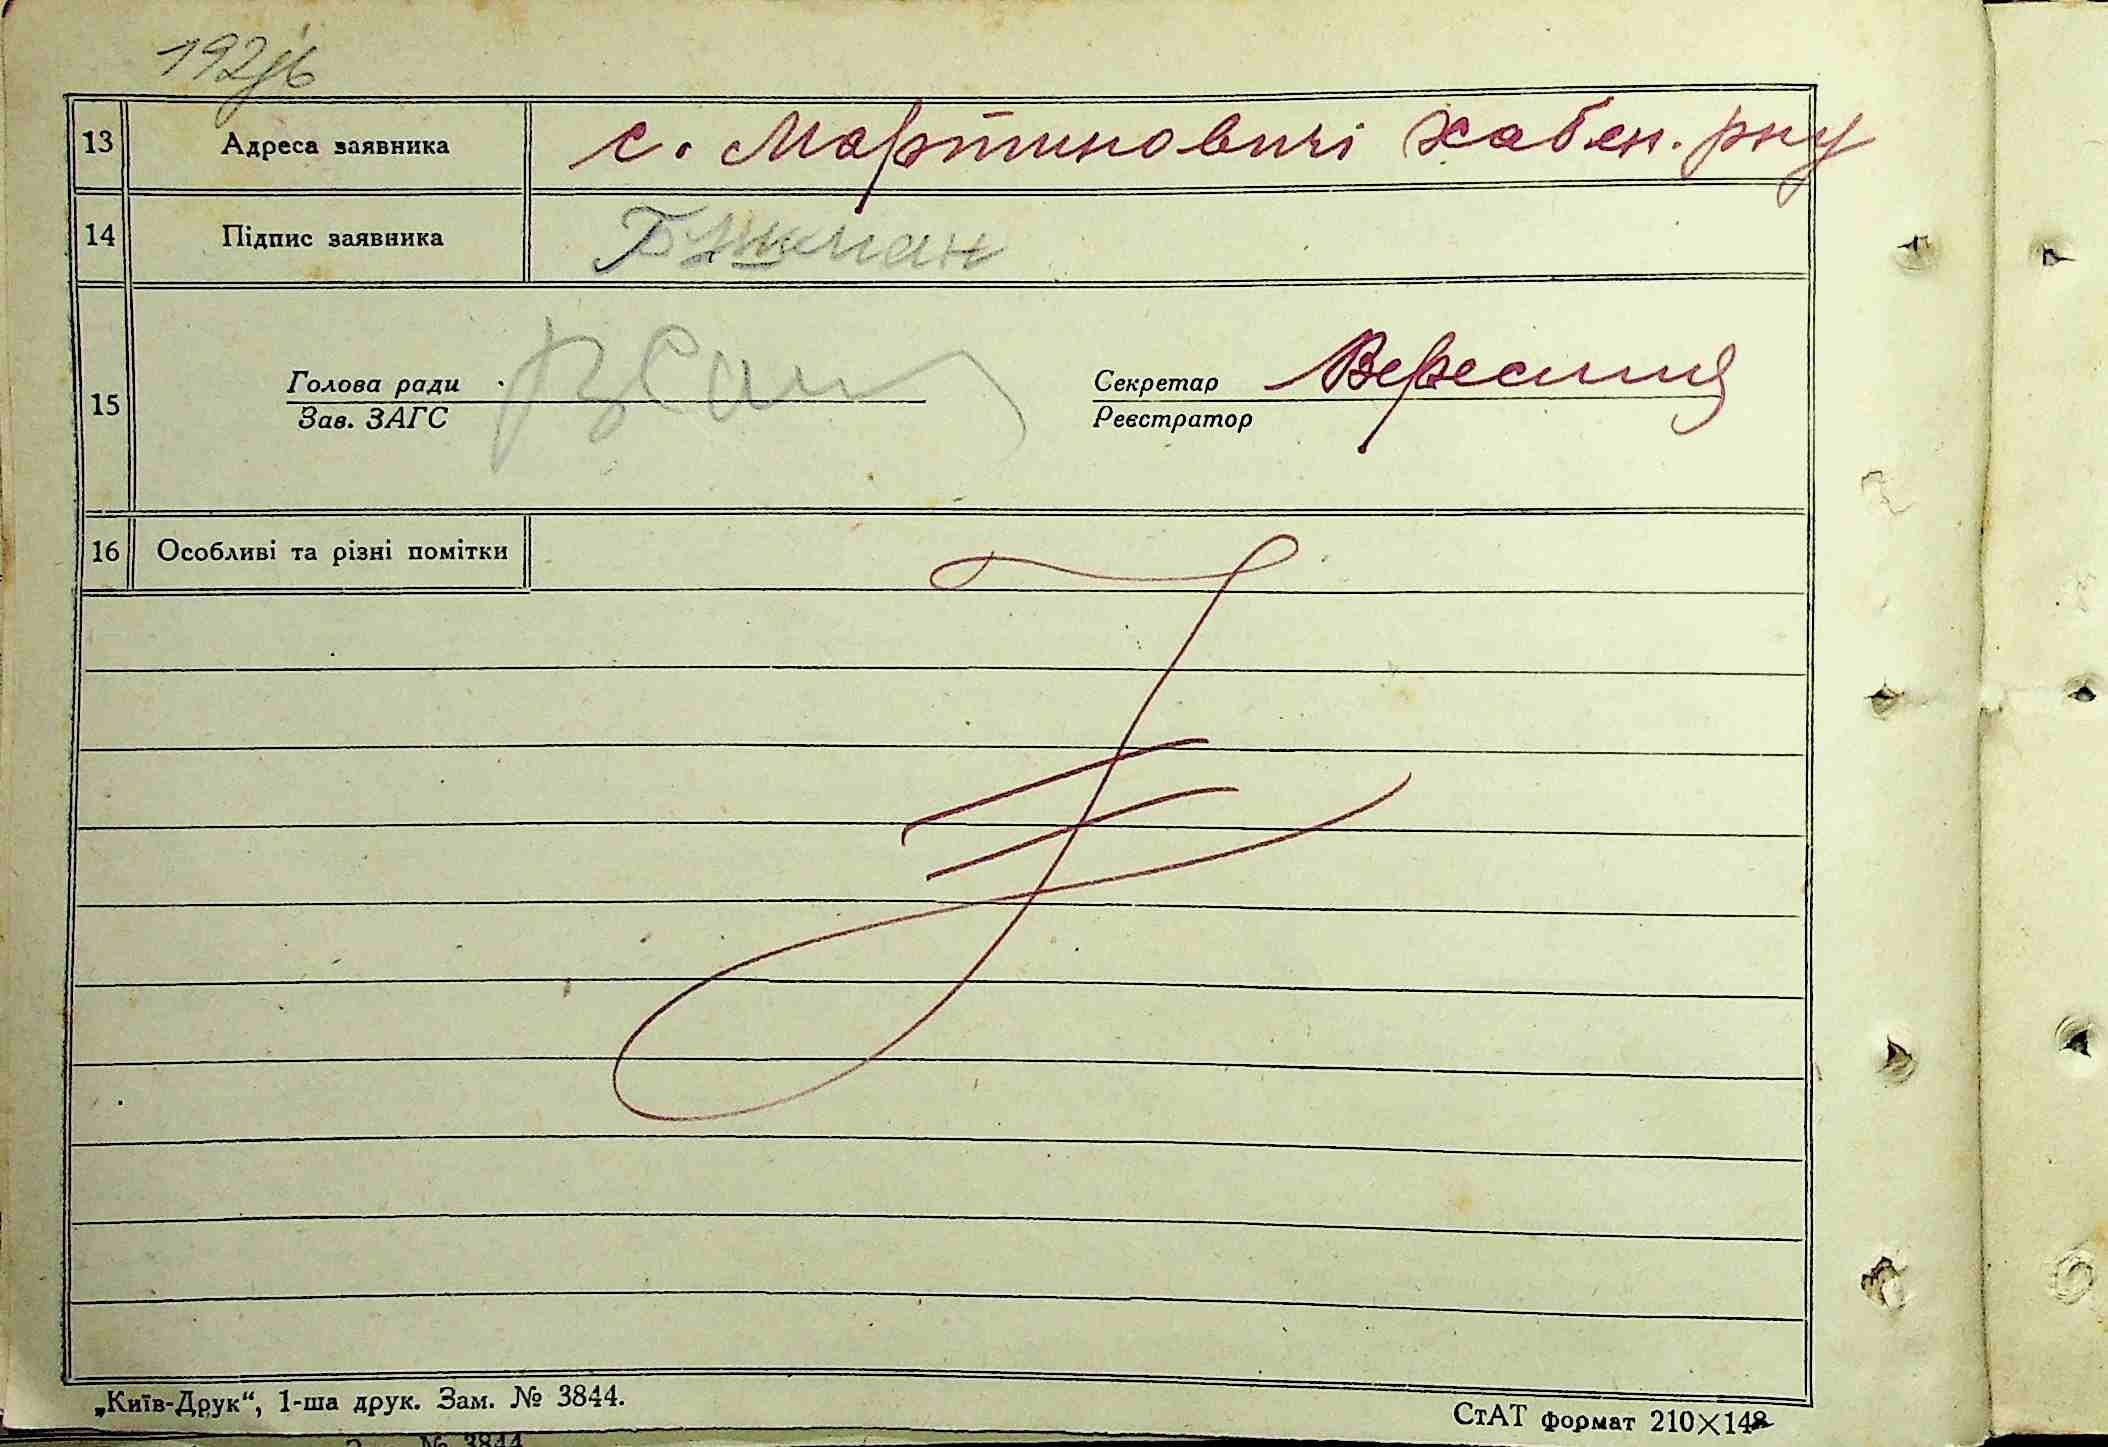 13 Адреса заявника с. Мартиновичі Хабен. рну
14 Підпис заявника
15 Голова ради Секретар
Зав. ЗАГС Реєстратор
16 Особливі та різні помітки
„Київ-Друк“, 1-ша друк. Зам. № 3844. СтАТ формат 210×148
№ 3844